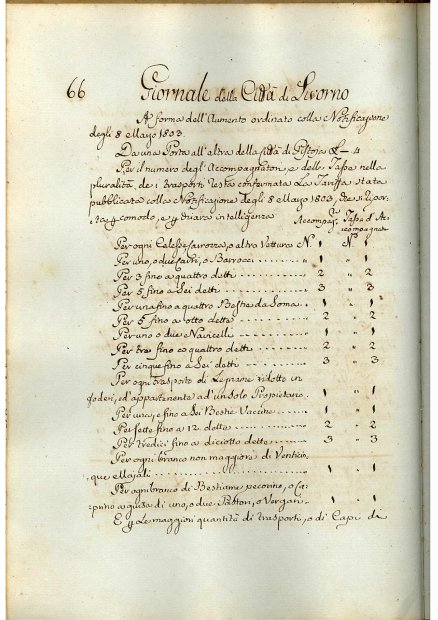 66 Giornale della Città di Livorno
A forma dell'Aumento ordinato colla Notificazione
degli 8 Mayo 1803.
Da una Porta all'altra della Città di Pistoja £ – 4
Per il numero degl'Accompagnatori, e delle Tasse nella
pluralità de i trasporti resta confermata La Tariffa stata
pubblicata colla Notificazione degli 8 Mayo 1803, che si ripor-
ta p comodo, e p chiara intelligenza
Accompag.ri Tasse d'Ac-
compagnatu
Per ogni Calesse, carrozza, o altra Vettura N. 1 N.o 1
Per uno, o due Carri, o Barocci 1 „ 1
Per 3 fino a quattro detti 2 „ 2
Per 5 fino a Sei detti 3 „ 3
Per una fino a quattro Bestie da Soma 1 „ 1
Per 5 fino a otto dette 2 „ 2
Per uno o due Navicelli 1 „ 1
Per tre fino a quattro detti 2 „ 2
Per cinque fino a Sei detti 3 „ 3
Per ogni trasporto di Legname ridotto in
foderi, ed appartenente ad un solo Proprietario 1 „ 1
Per una, e fino a Sei Bestie Vaccine 1 „ 1
Per sette fino a 12 dette 2 „ 2
Per tredici fino a diciotto dette 3 „ 3
Per ogni branco non maggiore di Venticin-
que Majali 1 „ 1
Per ogni branco di Bestiame pecorino, o Ca-
prino a guisa di uno, o due Pastori, o Vergari 1 „ 1
E p Le maggiori quantità di trasporti, o di Capi di